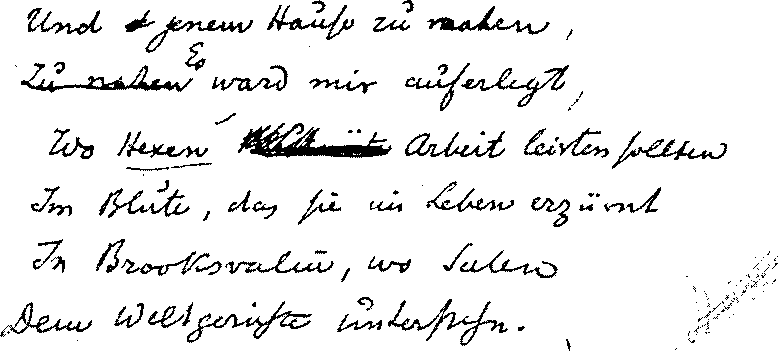 Und jenem Hause zu nahen,
Zu nahen Es ward mir auferlegt,
Wo Hexen Arbeit leisten sollten
Im Blute, das sie ins Leben erzürnt
In, wo Seelen
Dem Weltgerichte unterstehn.